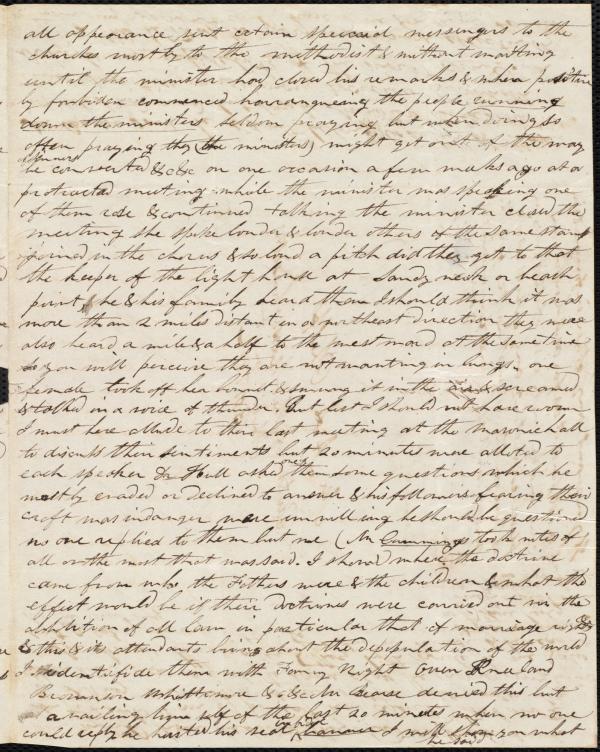 all appearance sent certain special messengers to the
churches mostly to the methodist & without waiting
until the minister had closed his remarks & when positive
ly forbiden commenced harrangueing the people running
down the ministers seldom praying but when doing so
often praying they (the ministers) might get out of the way
be converted &c &c on one occasion a few weeks ago at a
protracted meeting while the minister was speaking one
of them rose & continued talking the minister closed the
meeting she spoke louder & louder others of the same stamp
joined in the chorus & so loud a pitch did they get to that
the keeper of the light house at Sandy neck or beach
point, he & his family heard them I should think it was
more than 2 miles distant in a northeast direction they were
also heard a mile & a half to the westward at the same time
so you will perceive they are not wanting in lungs. one
female took off her bonnet & swung it in the air & screamed
& talked in a voice of thunder. But lest I should not have room
I must here allude to their last meeting at the masonic hall
to discuss their sentiments but 20 minutes were alloted to
each speaker Dr Hull asked them some questions which he
mostly evaded or declined to answer & his followers fearing their
craft was in danger were unwilling he should be questioned
no one replied to them but me (Mr Cummings took notes of
all or the most that was said. I showed where the doctrine
came from who the Fathers were & the children & what the
effect would be if their doctrines were carried out viz the
abolition of all law in particular that of marriage rights
& this & its attendants bring about the depopulation of the world
I identifide them with Fanny Right Owen Kneeland
Brownson Whittmore & c & c Mr Bearse denied this but
availing himself of the last 20 minutes when no one
could reply he hasted his seat I will he said you what